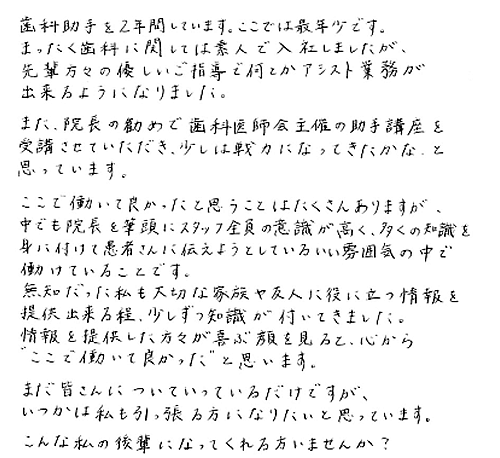 歯科助手を2年間しています。ここでは最年少です。
まったく歯科に関しては素人で入社しましたが、
先輩方々の優しいご指導で何とかアシスト業務が
出来るようになりました。
また、院長の勧めで歯科医師会主催の助手講座を
受講させていただき、少しは戦力になってきたかな、と
思っています。
ここで働いて良かったと思うことはたくさんありますが、
中でも院長を筆頭にスタッフ全員の意識が高く、多くの知識を
身に付けて患者さんに伝えようとしているいい雰囲気の中で
働けていることです。
無知だった私も大切な家族や友人に役に立つ情報を
提供出来る程、少しずつ知識が付いてきました。
情報を提供した方々が喜ぶ顔を見ると、心から
"ここで働いて良かった"と思います。
まだ皆さんについていっているだけですが、
いつかは私も引っ張る方になりたいと思っています。
こんな私の後輩になってくれる方いませんか?